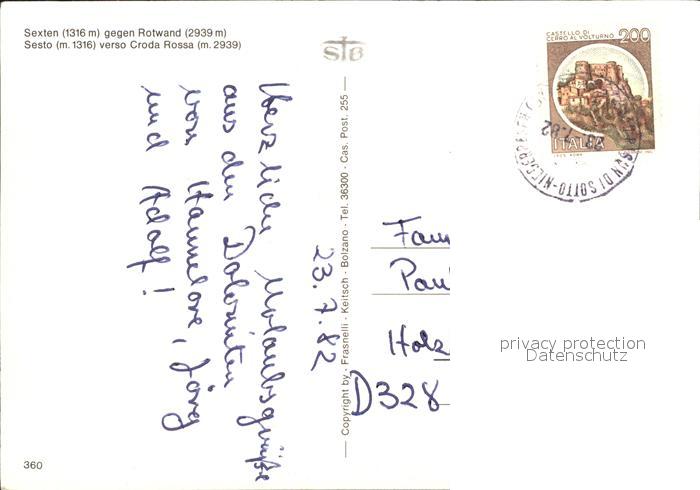 Sexten (1316 m) gegen Rotwand (2939 m)
Sesto (m. 1316) verso Croda Rossa (m. 2939)
STB
CASTELLO DI
CERRO AL VOLTURNO
200
ITALIA
Herzliche Urlaubsgrüße
aus den Dolomiten
von Hannelore, Jörg
und Adolf!
23.7.82
Copyright by - Frasnelli - Keitsch - Bolzano - Tel. 36300 - Cas. Post. 255
Fam
Pau
Holz
D328
privacy protection
Datenschutz
360